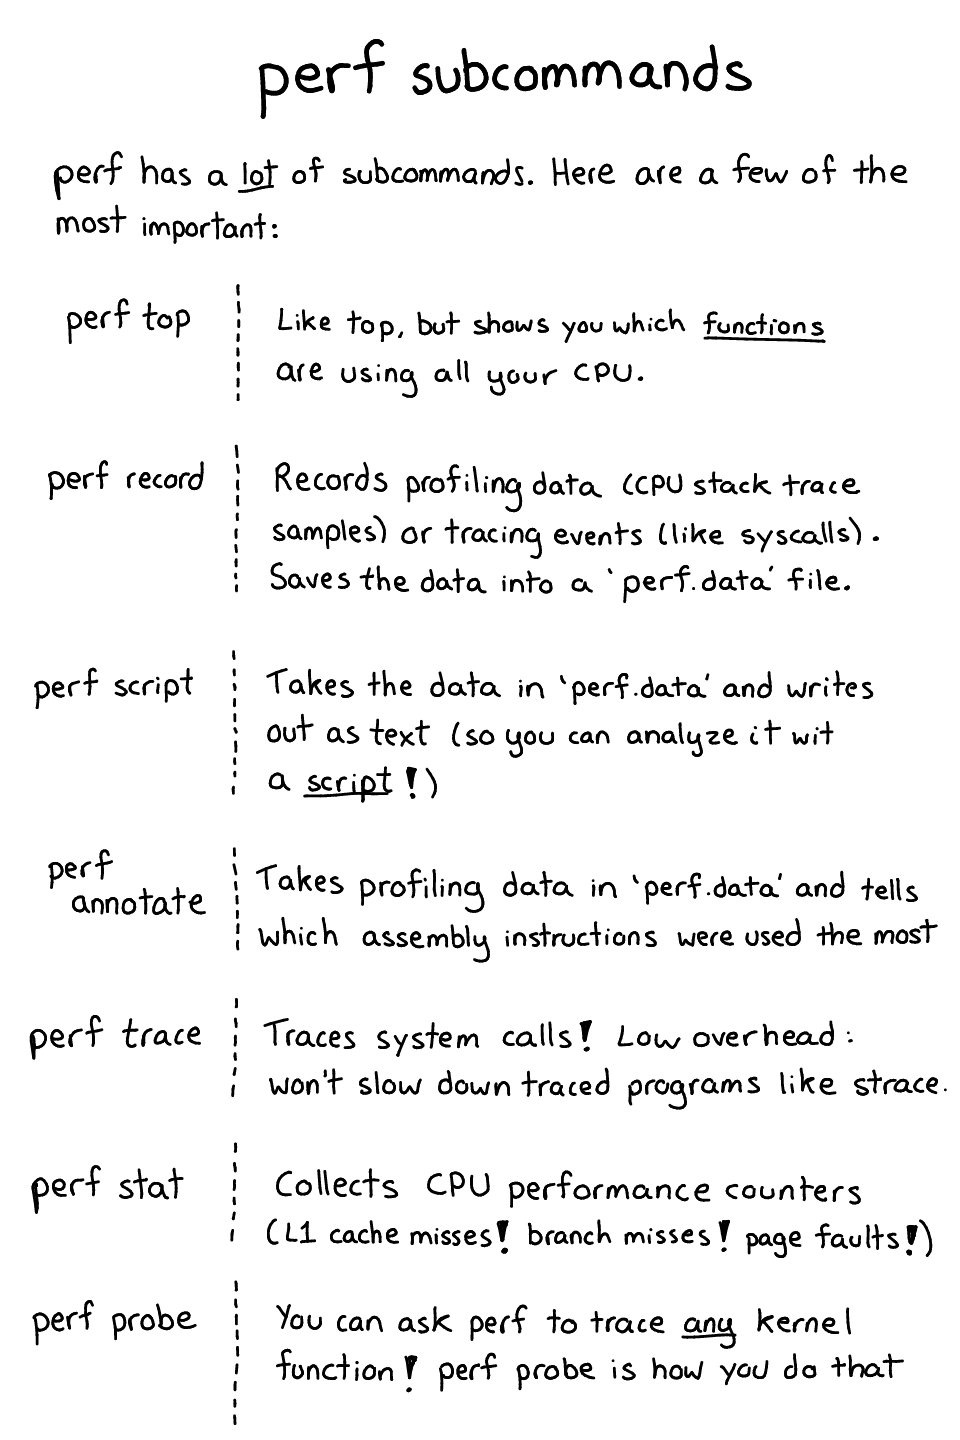 perf subcommands
perf has a lot of subcommands. Here are a few of the
most important:
perf top
Like top, but shows you which functions
are using all your CPU.
perf record
Records profiling data (CPU stack trace
samples) or tracing events (like syscalls).
Saves the data into a `perf.data' file.
perf script
Takes the data in `perf.data' and writes
out as text (so you can analyze it wit
a script!)
perf
annotate
Takes profiling data in `perf.data' and tells
which assembly instructions were used the most
perf trace
Traces system calls! Low overhead:
won't slow down traced programs like strace.
perf stat
Collects CPU performance counters
(L1 cache misses! branch misses! page faults!)
perf probe
You can ask perf to trace any kernel
function! perf probe is how you do that